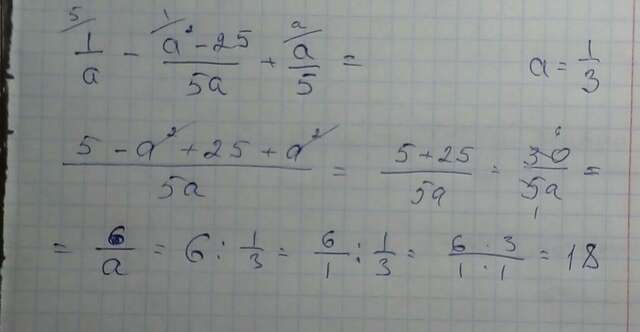 5/ 1/a - 1/ (a² - 25)/5a + a/ a/5 = a = 1/3
(5 - a² + 25 + a²)/5a = (5 + 25)/5a = 30/5a = 6 1
= 6/a = 6 : 1/3 = 6/1 : 1/3 = (6 · 3)/(1 · 1) = 18